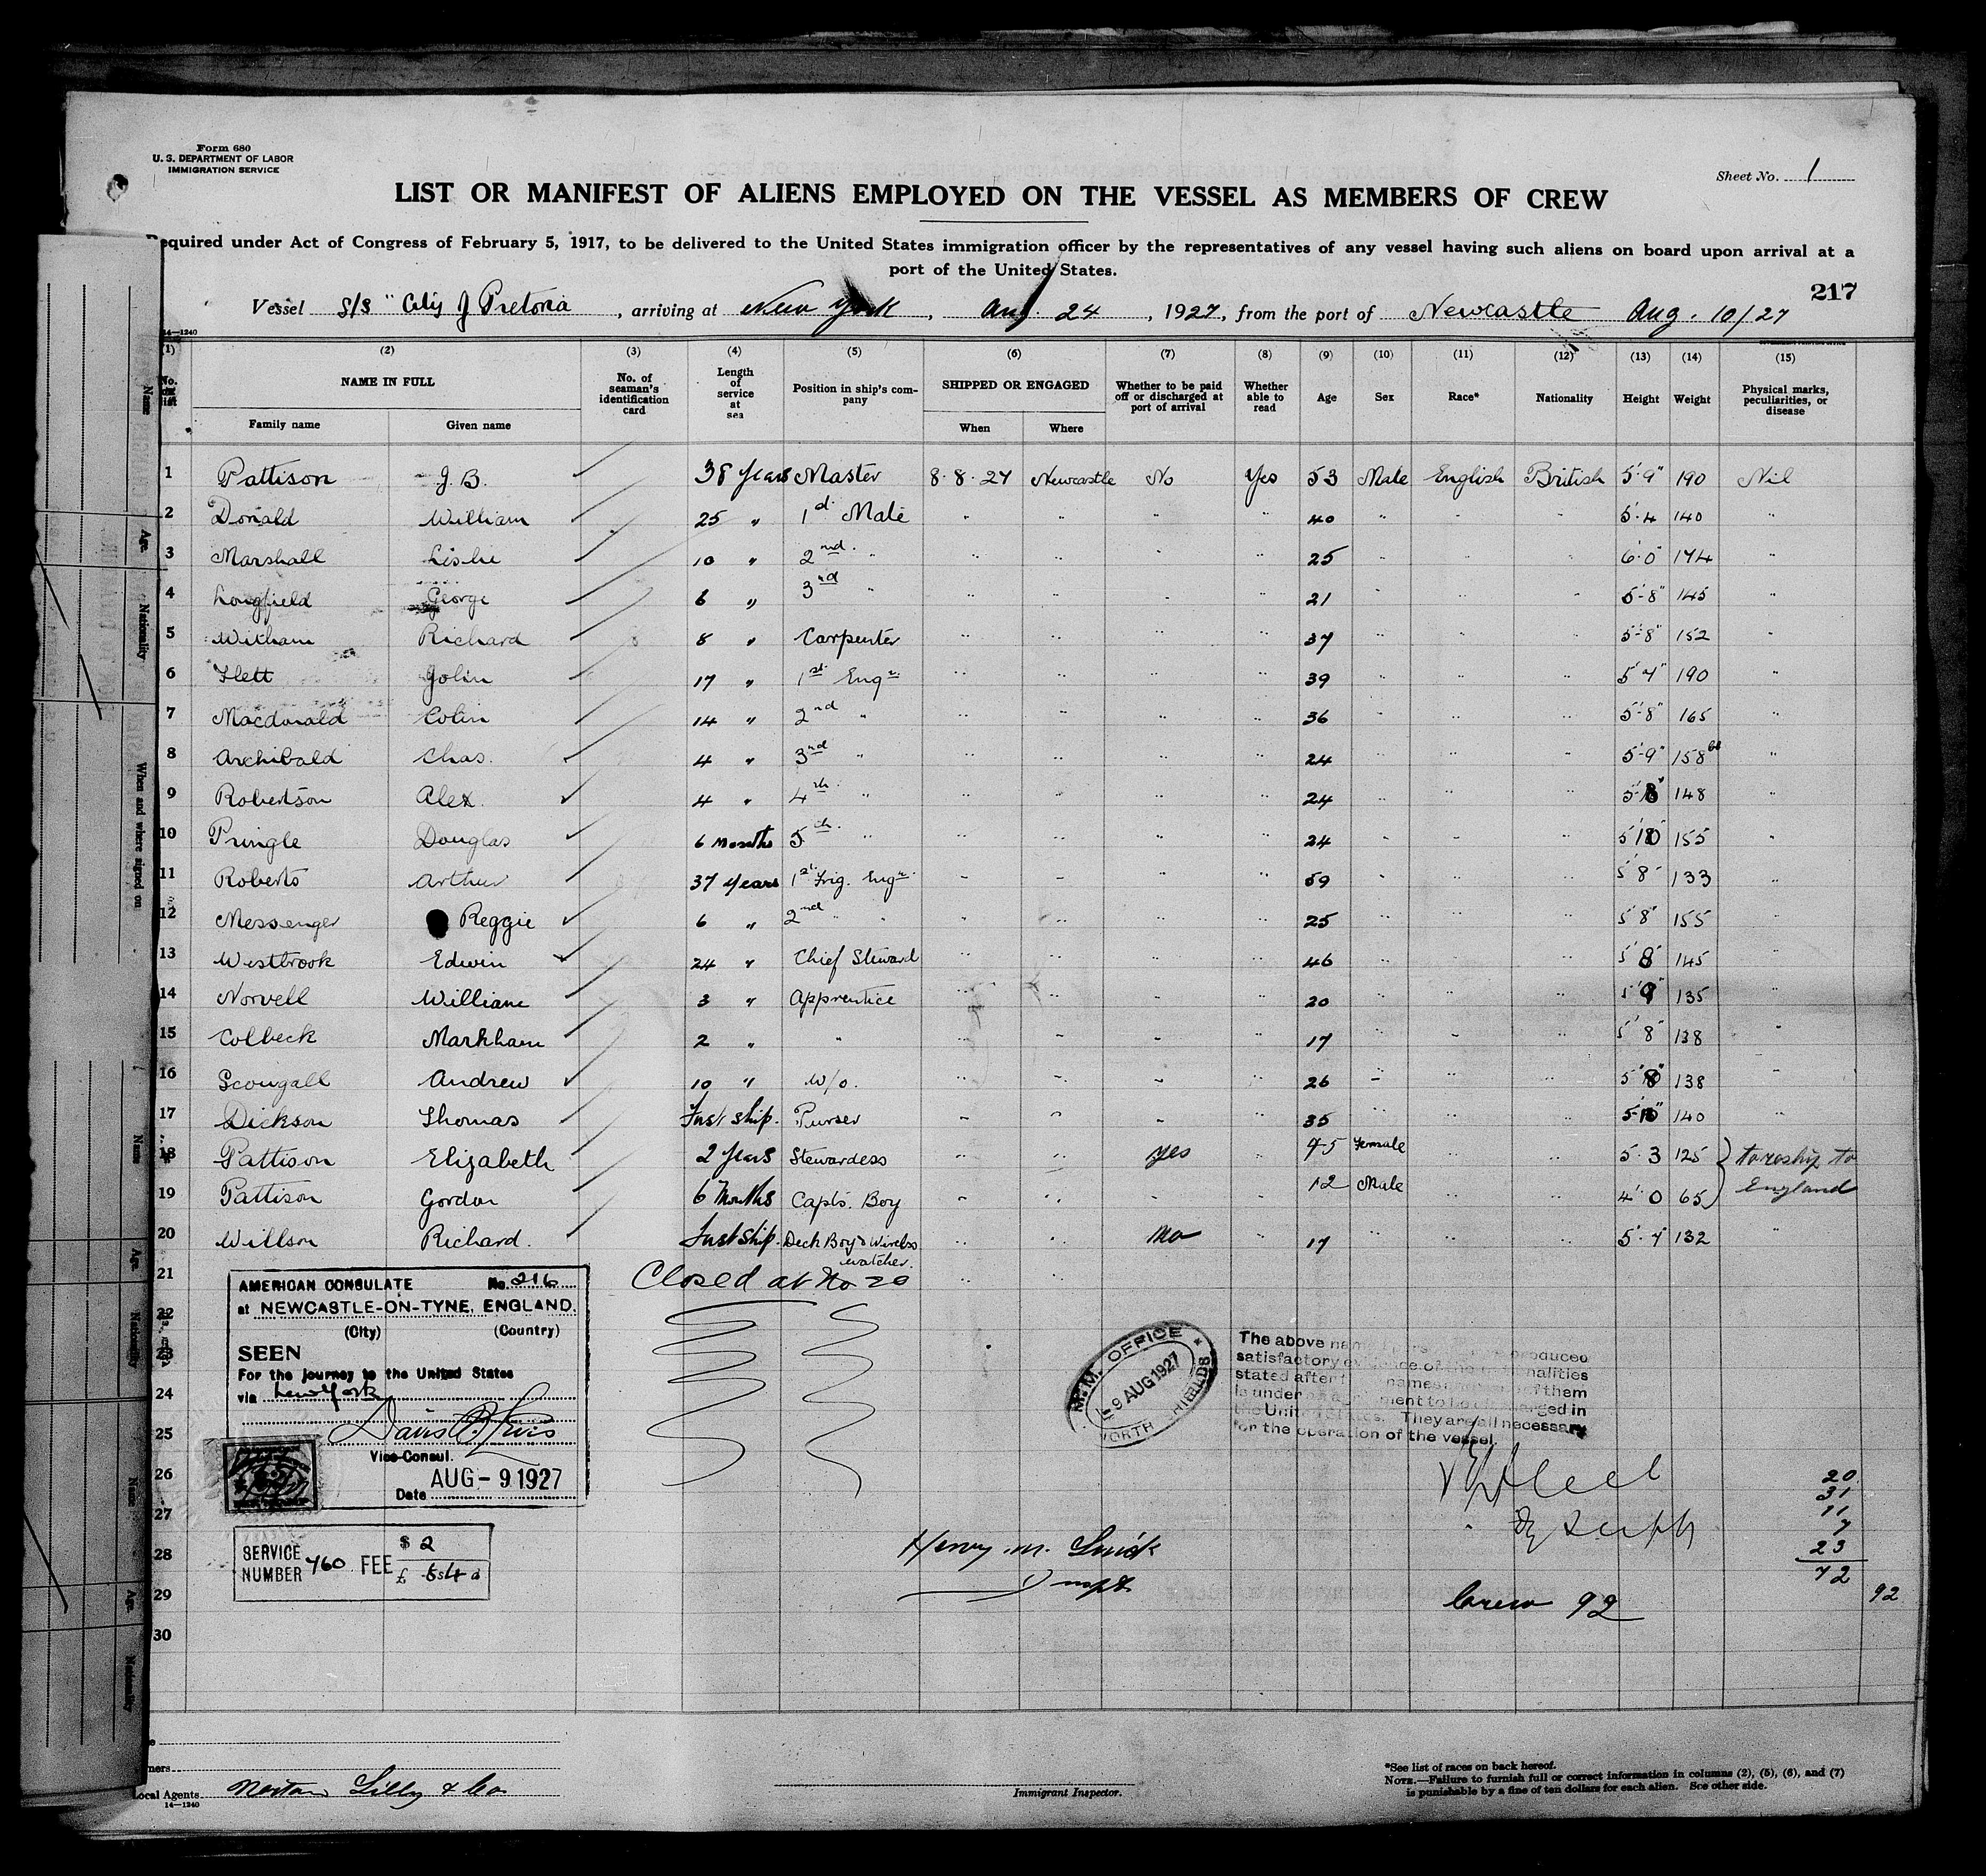 Form 680
U. S. DEPARTMENT OF LABOR
IMMIGRATION SERVICE
Sheet No. 1
LIST OR MANIFEST OF ALIENS EMPLOYED ON THE VESSEL AS MEMBERS OF CREW
Required under Act of Congress of February 5, 1917, to be delivered to the United States immigration officer by the representatives of any vessel having such aliens on board upon arrival at a
port of the United States.
217
Vessel S/S "City of Pretoria, arriving at New York, Aug. 24, 1927, from the port of Newcastle Aug. 10/27
14—1240
(1) (2) (3) (4) (5) (6) (7) (8) (9) (10) (11) (12) (13) (14) (15)
No. on list NAME IN FULL No. of seaman's identification card Length of service at sea Position in ship's company SHIPPED OR ENGAGED Whether to be paid off or discharged at port of arrival Whether able to read Age Sex Race* Nationality Height Weight Physical marks, peculiarities, or disease
Family name Given name When Where
1 Pattison J. B. 38 Years Master 8.8.27 Newcastle No Yes 53 Male English British 5'9" 190 Nil
2 Donald William 25 " 1st Mate " " " " 40 " " " 5.4 140 "
3 Marshall Leslie 10 " 2nd. " " " " " 25 " " " 6'0" 174 "
4 Longfield George 6 " 3rd " " " " " 21 " " " 5-8" 145 "
5 Witham Richard 8 " Carpenter " " " " 37 " " " 5'-8" 152 "
6 Flett John 17 " 1st Engr. " " " " 39 " " " 5'7" 190 "
7 Macdonald Colin 14 " 2nd " " " " " 36 " " " 5'-8" 165 "
8 Archibald Chas. 4 " 3rd " " " " " 24 " " " 5'-9" 158 "
9 Robertson Alex. 4 " 4th " " " " " 24 " " " 5'8" 148 "
10 Pringle Douglas 6 Months 5th " " " " " 24 " " " 5'10 155 "
11 Roberts Arthur 37 Years 1st Frig. Engr. " " " " 59 " " " 5'8" 133 "
12 Messenger Reggie 6 " 2nd " " " " " " 25 " " " 5'8" 155 "
13 Westbrook Edwin 24 " Chief Steward " " " " 46 " " " 5'8" 145 "
14 Norvell William 3 " Apprentice " " " " 20 " " " 5'9" 135 "
15 Colbeck Markham 2 " " " " " " 17 " " " 5'8" 138 "
16 Scougall Andrew 10 " W/o. " " " " 26 " " " 5'8" 138 "
17 Dickson Thomas First ship. Purser " " " " 35 " " " 5-10" 140 "
18 Pattison Elizabeth 2 Years Stewardess " " Yes " 45 Female " " 5.3 125 to reship to
19 Pattison Gordon 6 Months Capts. Boy " " " " 12 Male " " 4'0 65 England
20 Willson Richard. First ship. Deck Boy & Wireless " " No " 17 " " " 5.7 132 "
watcher.
21 Closed at No 20 " "
22
23
24
25
26
27
28
29
30
AMERICAN CONSULATE No. 216
at NEWCASTLE-ON-TYNE, ENGLAND.
(City) (Country)
SEEN
For the journey to the United States
via New York
Vice-Consul.
Date AUG - 9 1927
SERVICE NUMBER 760 FEE $ 2
£
M.M. OFFICE
9 AUG 1927
NORTH SHIELDS
The above named persons have produced
satisfactory evidence of the nationalities
stated after their names
is under agreement to be discharged in
the United States. They are all necessary
for the operation of the vessel.
Henry M.
Inspt.
Crew 92
20
31
11
7
23
72
92
Local Agents Norton Lilly & Co
14—1240
Immigrant Inspector.
*See list of races on back hereof.
NOTE.—Failure to furnish full or correct information in columns (2), (5), (6), and (7)
is punishable by a fine of ten dollars for each alien. See other side.
Name
Age.
Nationality
When and where signed on
Name
Age.
Nationality
Name
Age.
Nationality